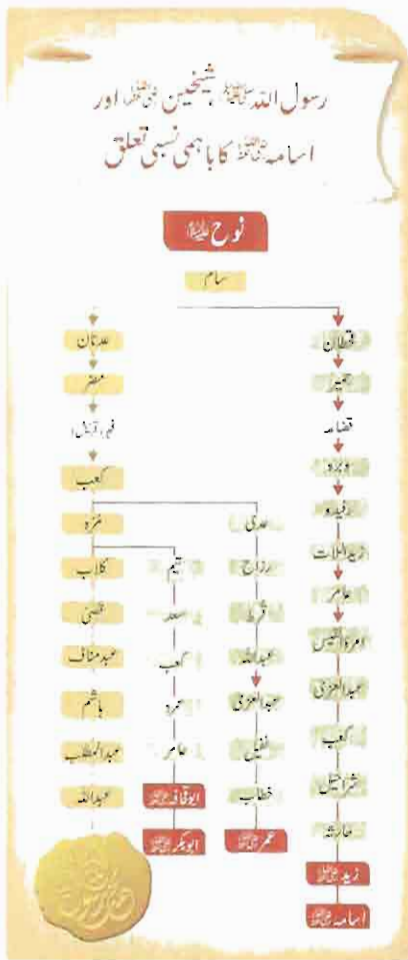 رسول اللہ ﷺ، شیخین رضی اللہ عنہما اور
اسامہ رضی اللہ عنہ کا باہمی نسبی تعلق
نوح علیہ السلام
سام
قحطان
حمیر
قضاعہ
وبرہ
رفیدہ
زیداللات
عامر
امرؤالقیس
عبدالعزیٰ
کعب
شراحیل
حارثہ
زید رضی اللہ عنہ
اسامہ رضی اللہ عنہ
عدنان
مضر
فہر (قریش)
کعب
عدی
رزاح
قرط
عبداللہ
عبدالعزیٰ
نفیل
خطاب
عمر رضی اللہ عنہ
مُرّہ
تیم
سعد
کعب
عمرو
عامر
ابوقحافہ رضی اللہ عنہ
ابوبکر رضی اللہ عنہ
کلاب
قصی
عبدمناف
ہاشم
عبدالمطلب
عبداللہ